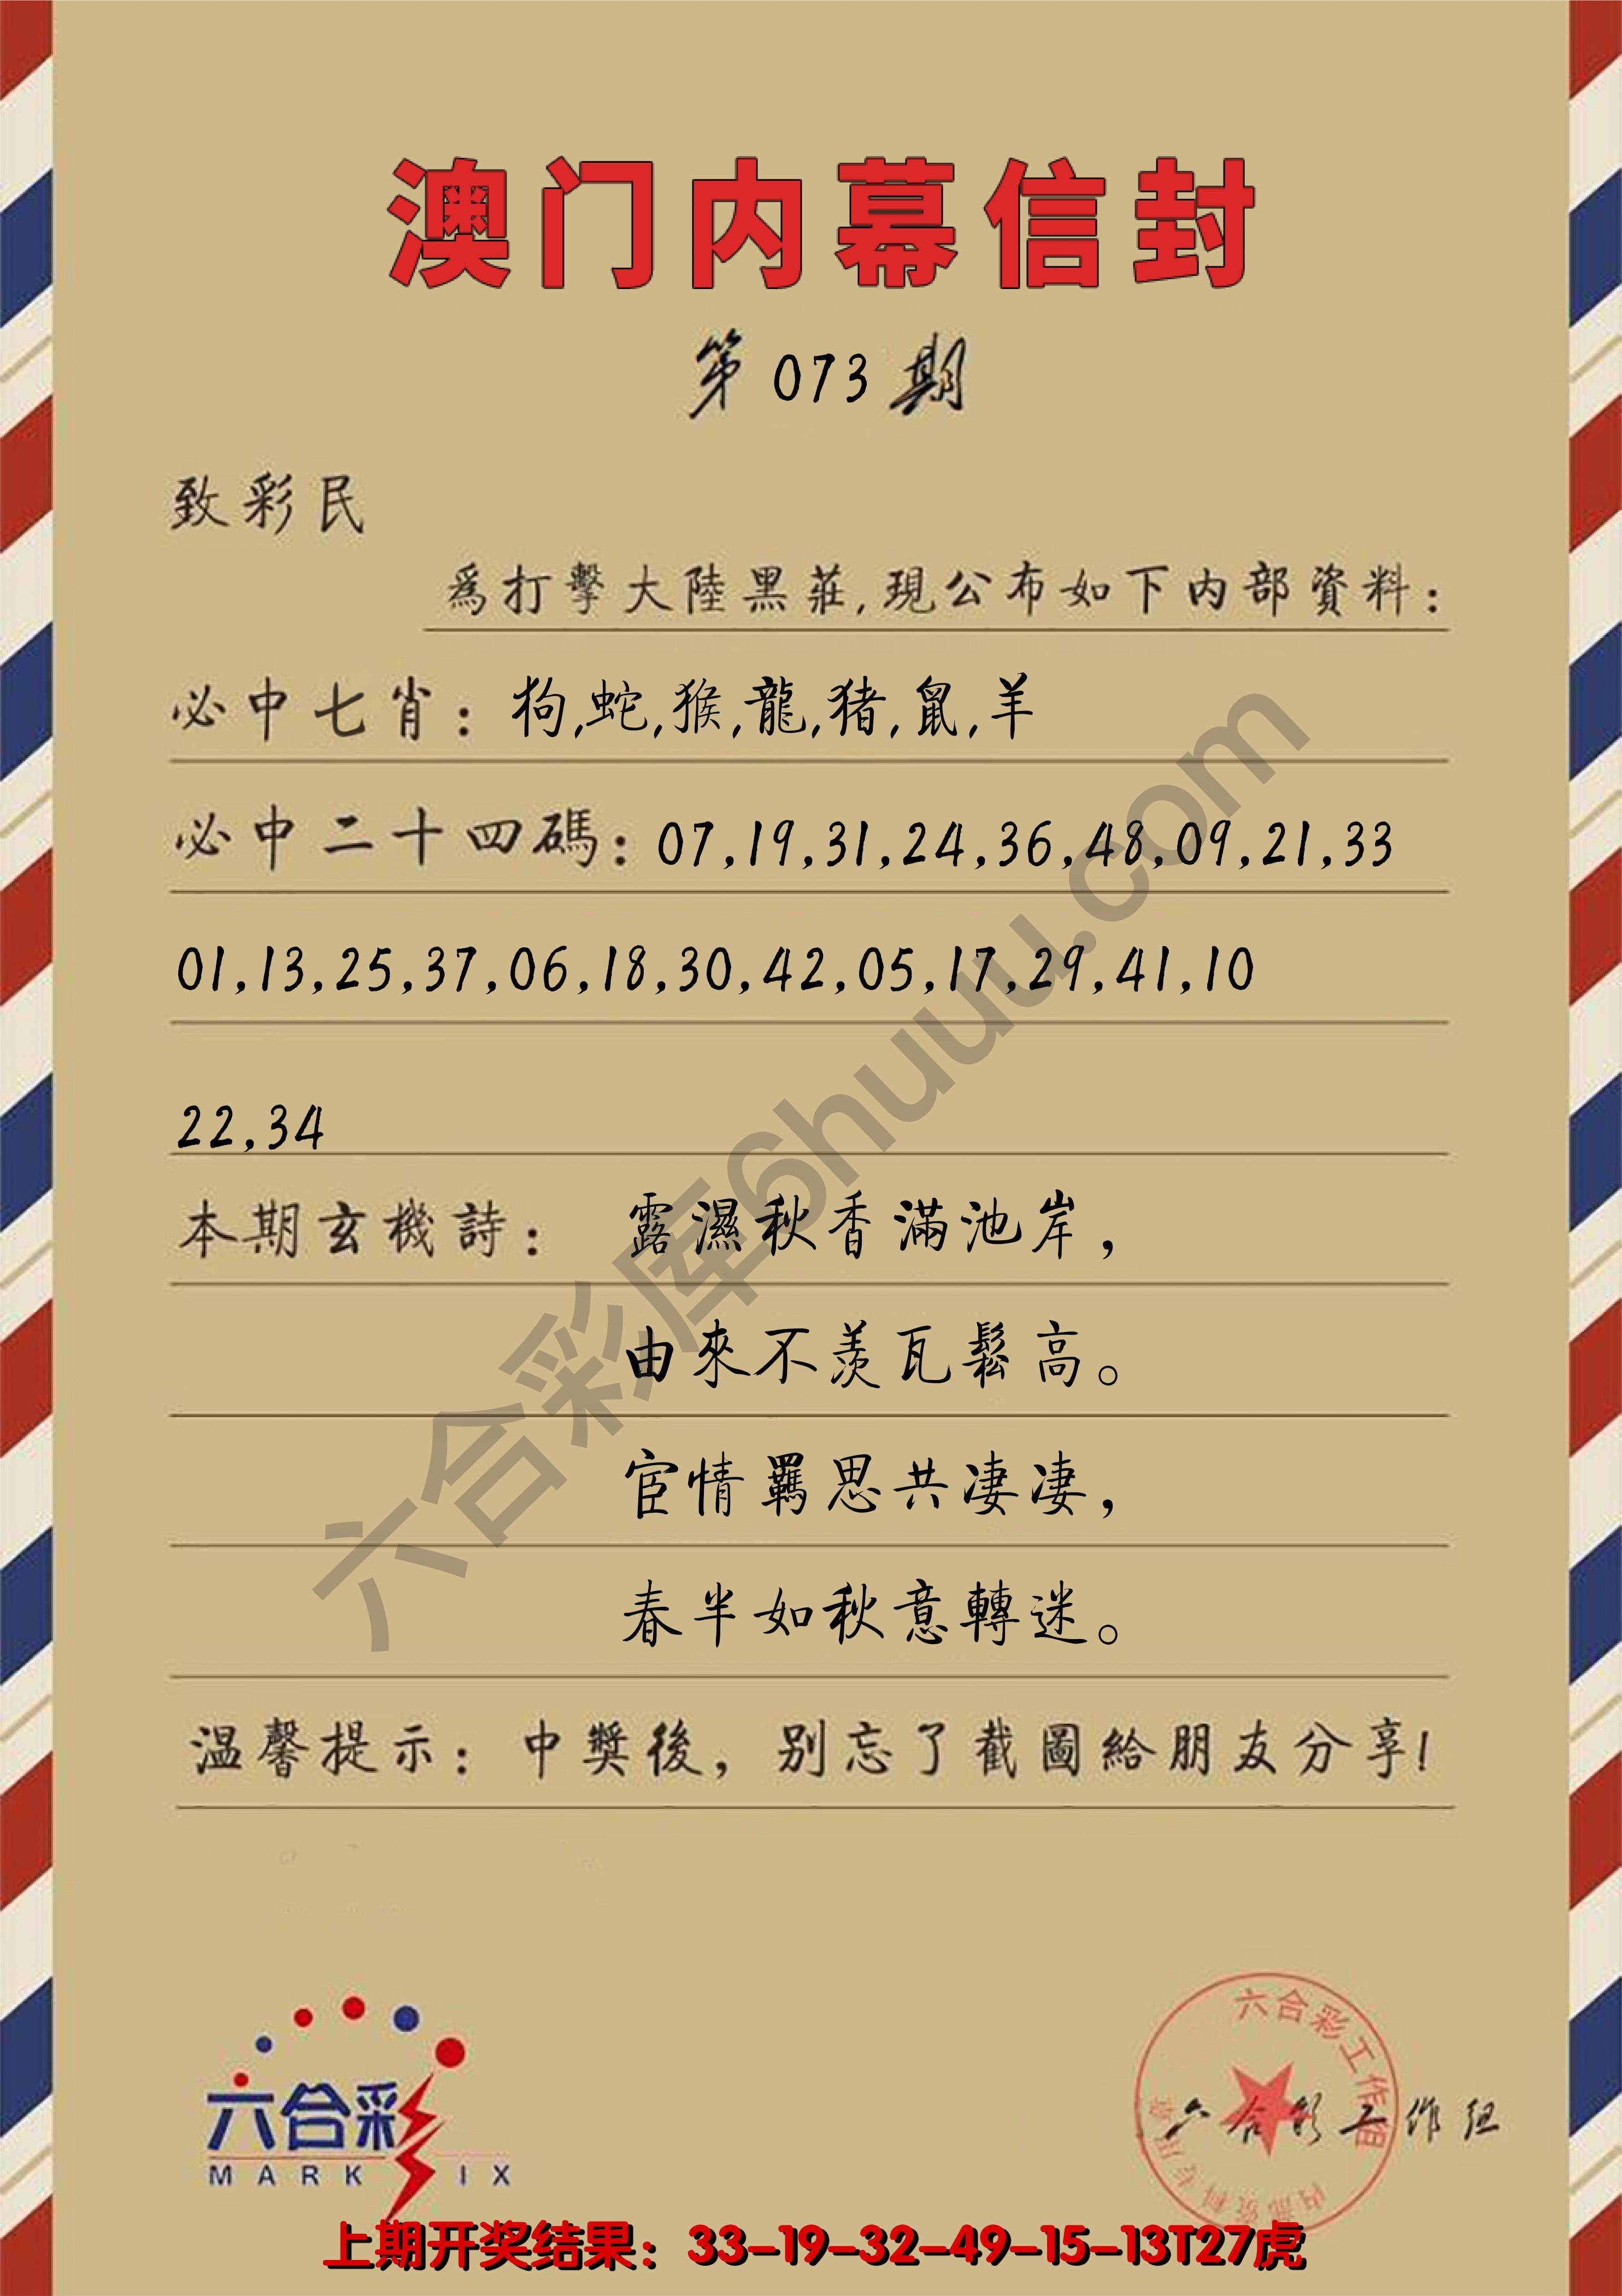 澳门内幕信封
第073期
致彩民
為打擊大陸黑莊,現公布如下内部資料:
必中七肖:狗,蛇,猴,龍,猪,鼠,羊
必中二十四碼:07,19,31,24,36,48,09,21,33
01,13,25,37,06,18,30,42,05,17,29,41,10
22,34
本期玄機詩: 露濕秋香滿池岸,
由來不羨瓦鬆高。
宦情羈思共淒淒,
春半如秋意轉迷。
温馨提示:中獎後,别忘了截圖給朋友分享!
六合彩库6huuu.com
六合彩
MARK SIX
六合彩工作组
内部资料专用章
六合彩工作组
上期开奖结果:33-19-32-49-15-13T27虎